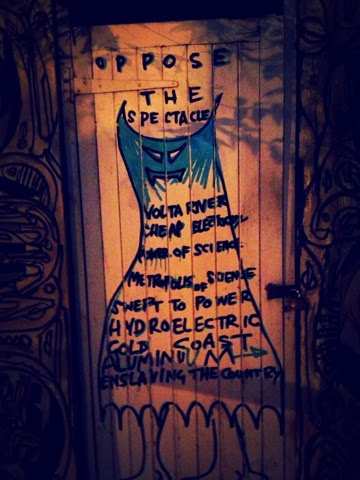 OPPOSE
THE
SPECTACLE
VOLTA RIVER
CHEAP
POWER OF SCIENCE
METROPOLIS OF SCIENSE
SWEPT TO POWER
HYDROELECTRIC
GOLD COAST
ALUMINUUM
ENSLAVING THE COUNTRY